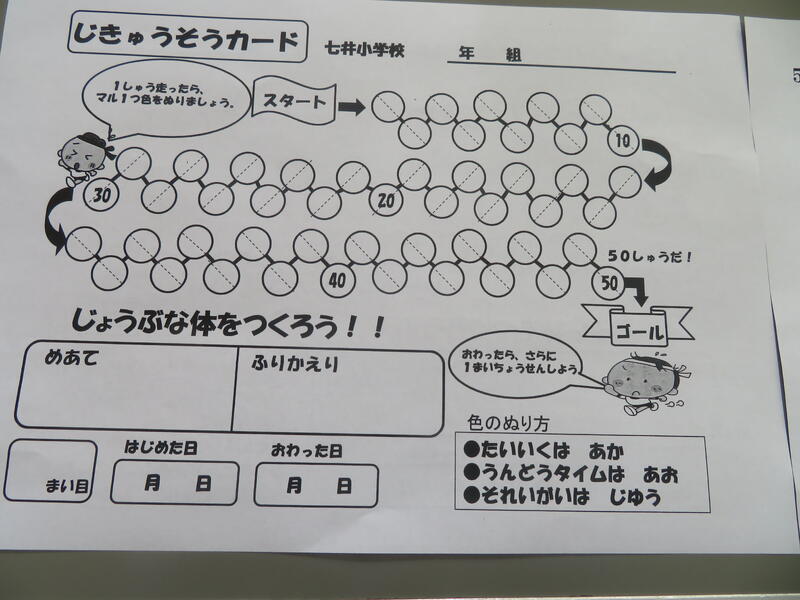 じきゅうそうカード
七井小学校 年 組
1しゅう走ったら、
マル1つ色をぬりましょう。
スタート
10
30
20
40
50
50しゅうだ!
ゴール
じょうぶな体をつくろう!!
めあて
ふりかえり
おわったら、さらに
1まいちょうせんしよう
まい目
はじめた日
月 日
おわった日
月 日
色のぬり方
●たいいくは あか
●うんどうタイムは あお
●それいがいは じゆう
5